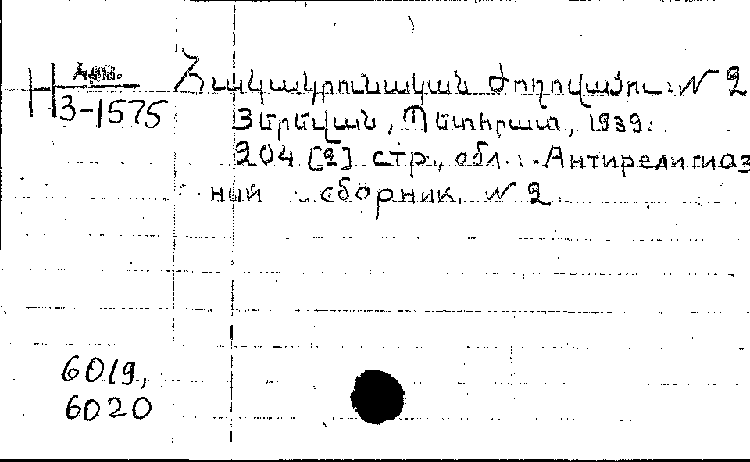 Арм.
Н 3-1575
Հակակրոնական ժողովածու: N 2
Յերեվան, Պետհրատ, 1939:
204 [2] стр., обл. Антирелигиоз
ный сборник. N 2
6019,
6020